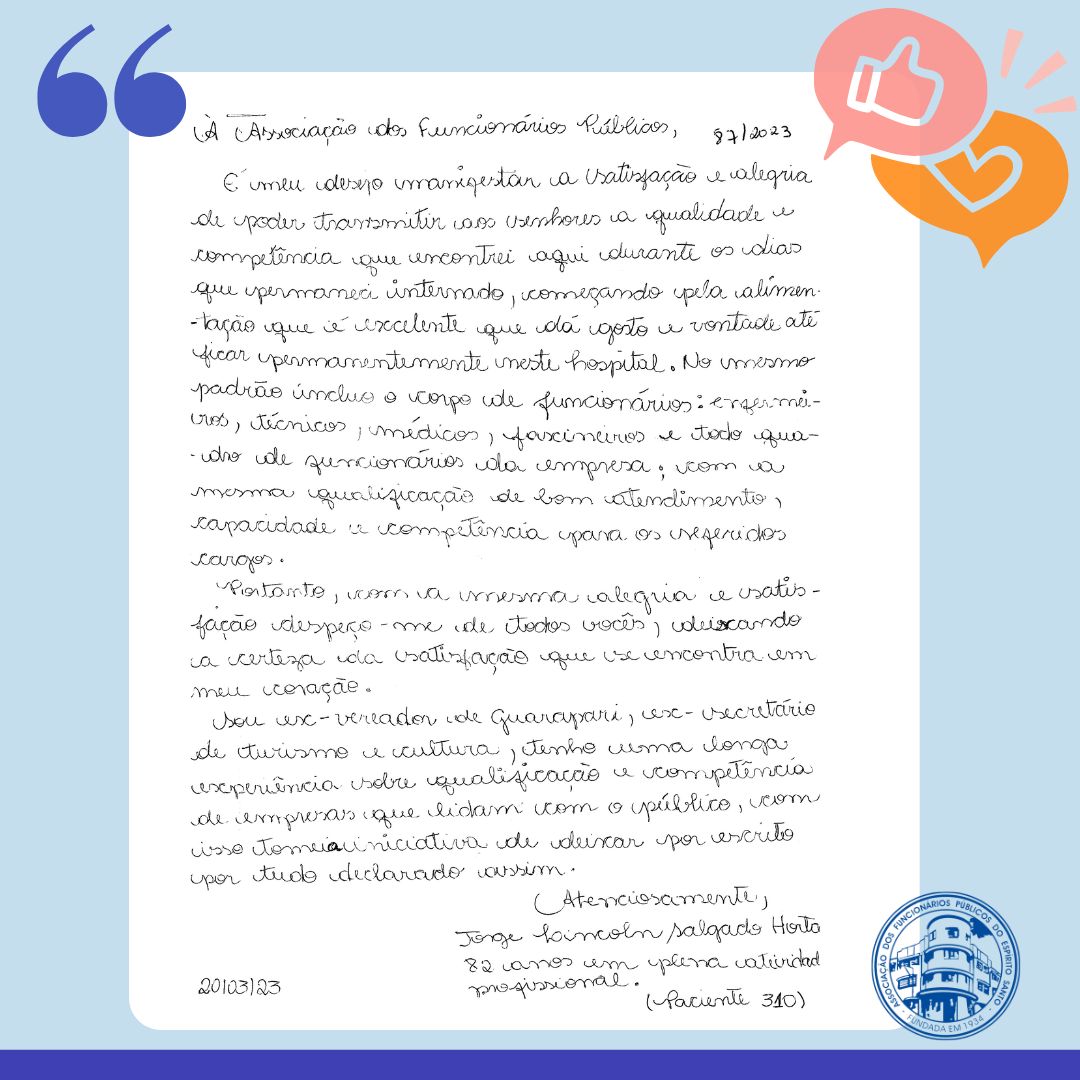 À Associação dos Funcionários Públicos, 87/2023
É meu desejo manifestar a satisfação e alegria
de poder transmitir aos senhores a qualidade e
competência que encontrei aqui durante os dias
que permaneci internado, começando pela alimen-
-tação que é excelente que dá gosto e vontade até
ficar permanentemente neste hospital. No mesmo
padrão incluo o corpo de funcionários: enfermei-
ros, técnicos, médicos, fascineiros e todo qua-
-dro de funcionários da empresa; com a
mesma qualificação de bom atendimento,
capacidade e competência para os referidos
cargos.
Portanto, com a mesma alegria e satis-
fação despeço-me de todos vocês, deixando
a certeza da satisfação que se encontra em
meu coração.
Sou ex-vereador de Guarapari, ex-secretário
de turismo e cultura, tenho uma longa
experiência sobre qualificação e competência
de empresas que lidam com o público, com
isso tomei a iniciativa de deixar por escrito
por tudo declarado assim.
Atenciosamente,
Jorge Lincoln Salgado Horta
82 anos em plena atividad
profissional.
20/03/23
(Paciente 310)
ASSOCIAÇÃO DOS FUNCIONÁRIOS PÚBLICOS DO ESPÍRITO SANTO
- FUNDADA EM 1934 -